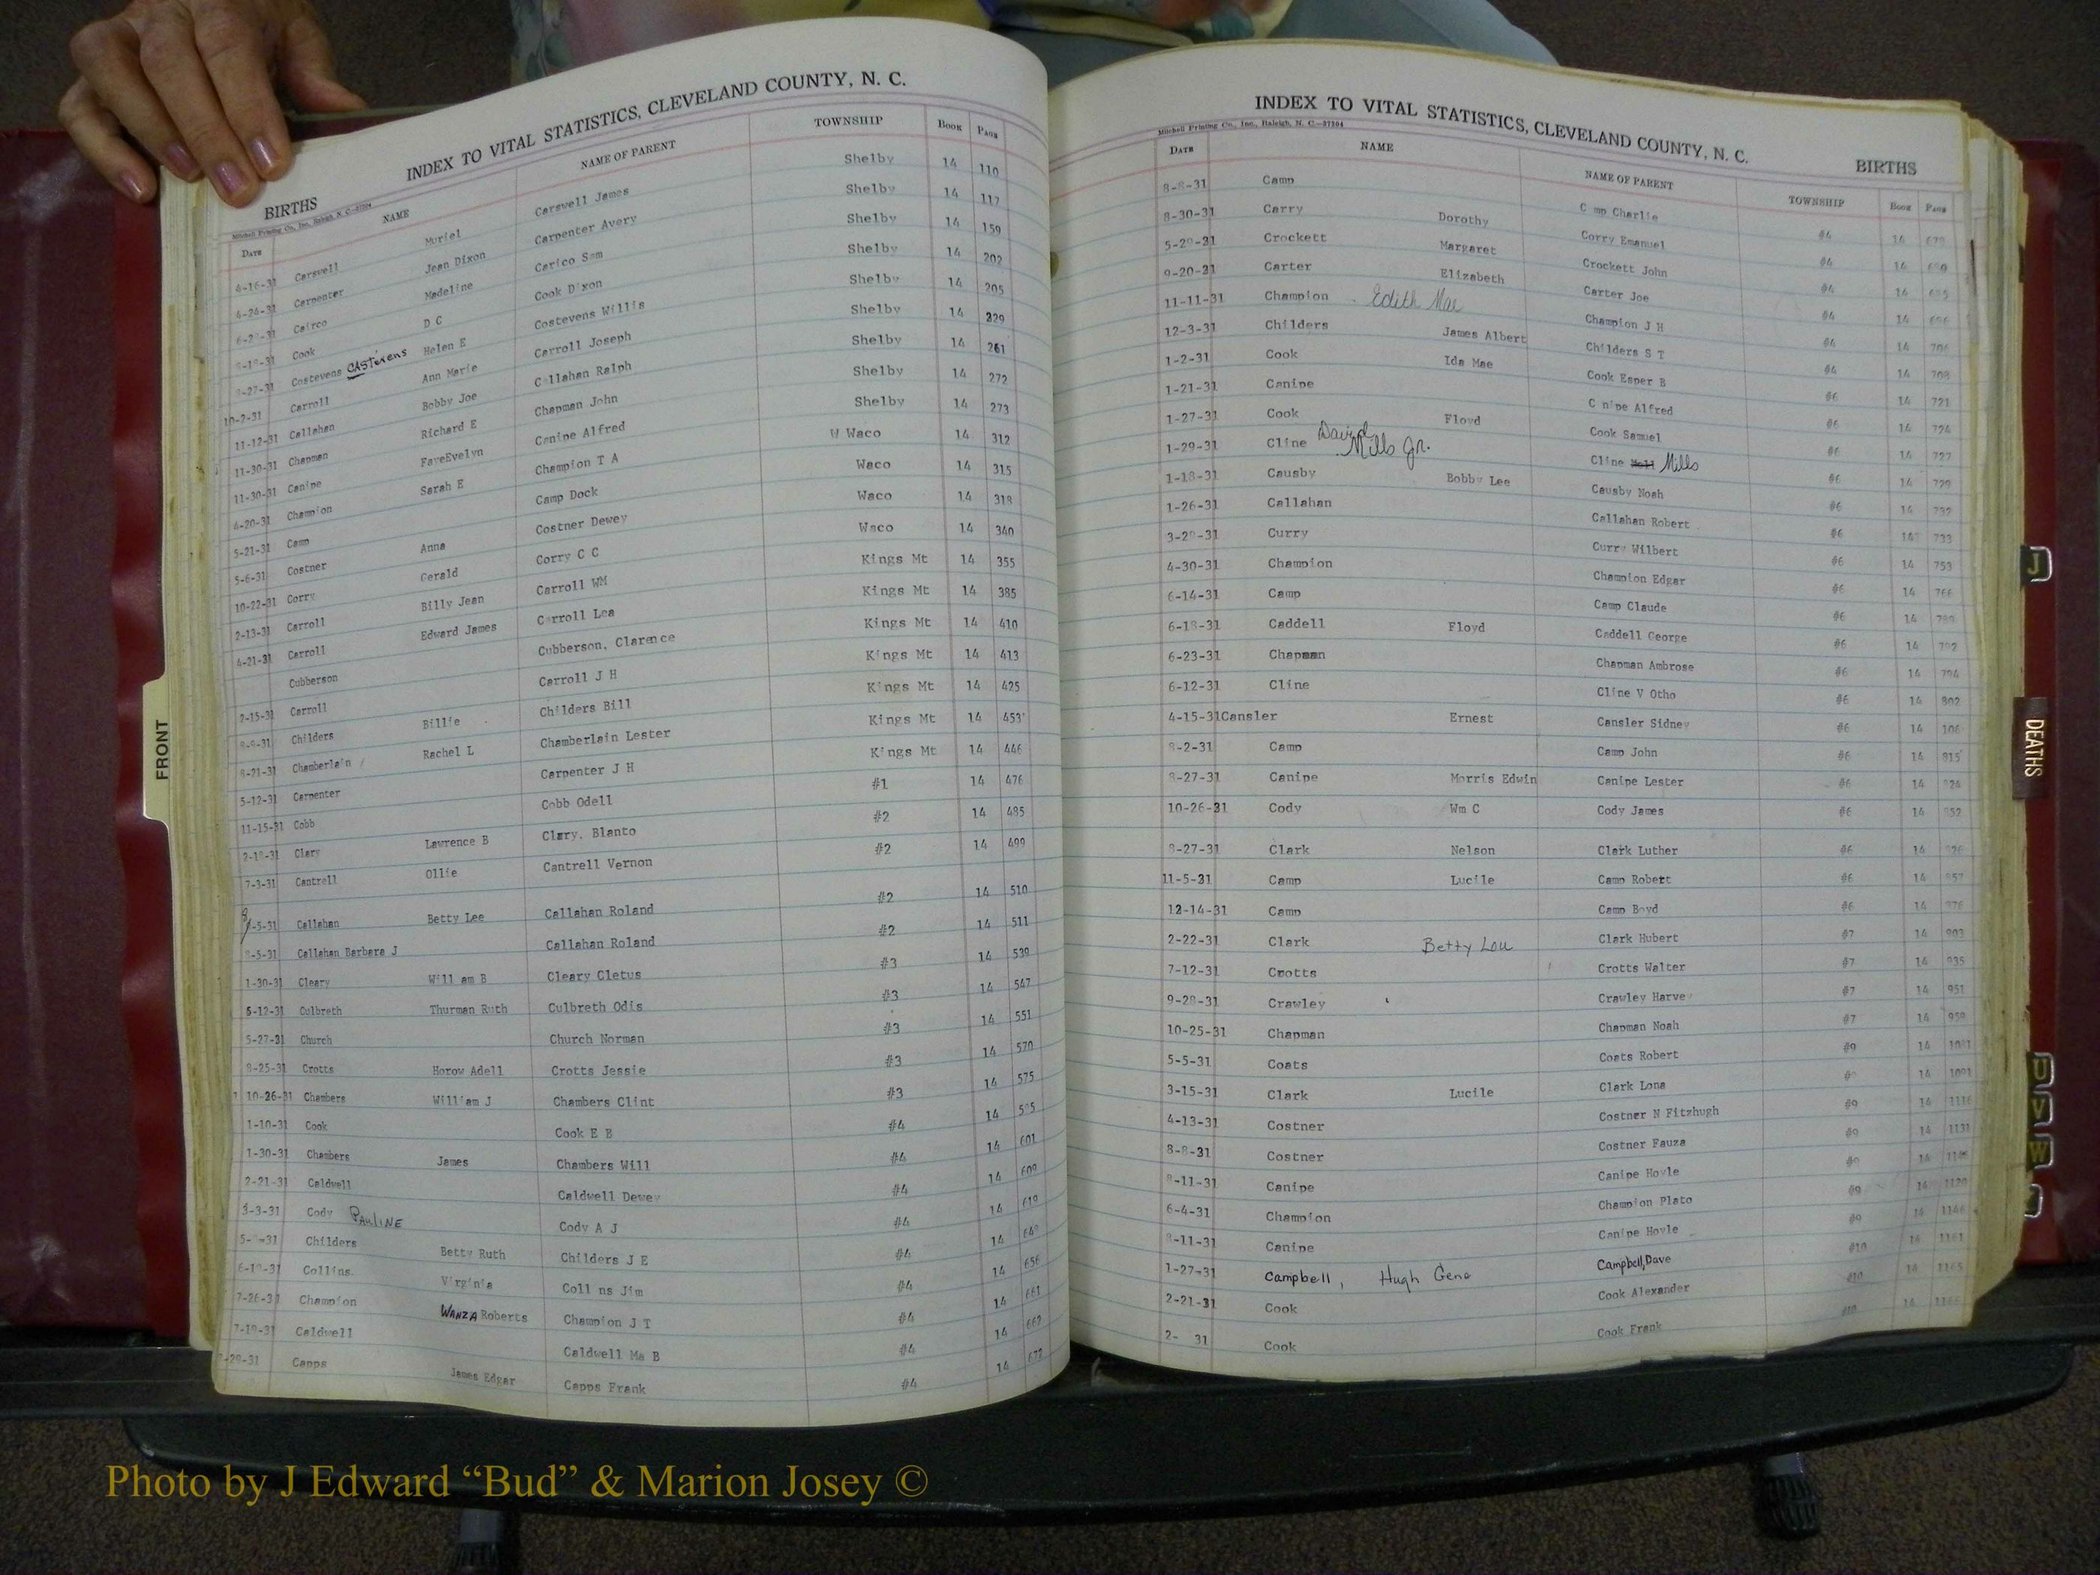 BIRTHS INDEX TO VITAL STATISTICS, CLEVELAND COUNTY, N. C.
Mitchell Printing Co., Inc., Raleigh, N. C.—37204
DATE NAME NAME OF PARENT TOWNSHIP BOOK PAGE
4-16-31 Carswell Muriel Carswell James Shelby 14 110
4-24-31 Carpenter Jean Dixon Carpenter Avery Shelby 14 117
Cairco Madeline Carico Sam Shelby 14 159
8-18-31 Cook D C Cook Dixon Shelby 14 202
8-27-31 Costevens CASTevens Helen E Costevens Willis Shelby 14 205
10-2-31 Carroll Ann Marie Carroll Joseph Shelby 14 229
11-12-31 Callahan Bobby Joe Callahan Ralph Shelby 14 261
11-30-31 Chapman Richard E Chapman John Shelby 14 272
11-30-31 Canipe FayeEvelyn Canipe Alfred Shelby 14 273
4-20-31 Champion Sarah E Champion T A W Waco 14 312
5-21-31 Camp Camp Dock Waco 14 315
5-6-31 Costner Anna Costner Dewey Waco 14 318
10-22-31 Corry Gerald Corry C C Waco 14 340
2-13-31 Carroll Billy Jean Carroll WM Kings Mt 14 355
4-21-31 Carroll Edward James Carroll Lea Kings Mt 14 385
Cubberson Cubberson, Clarence Kings Mt 14 410
2-15-31 Carroll Carroll J H Kings Mt 14 413
8-9-31 Childers Billie Childers Bill Kings Mt 14 425
8-21-31 Chamberlain Rachel L Chamberlain Lester Kings Mt 14 453
5-12-31 Carpenter Carpenter J H Kings Mt 14 446
11-15-31 Cobb Cobb Odell #1 14 476
2-18-31 Clary Lawrence B Clary, Blanto #2 14 485
7-3-31 Cantrell Ollie Cantrell Vernon #2 14 499
8-5-31 Callahan Betty Lee Callahan Roland #2 14 510
8-5-31 Callahan Barbara J Callahan Roland #2 14 511
1-30-31 Cleary Will am B Cleary Cletus #3 14 539
5-12-31 Culbreth Thurman Ruth Culbreth Odis #3 14 547
5-27-31 Church Church Norman #3 14 551
8-25-31 Crotts Horow Adell Crotts Jessie #3 14 570
10-26-31 Chambers William J Chambers Clint #3 14 575
1-10-31 Cook Cook E B #4 14 595
1-30-31 Chambers James Chambers Will #4 14 601
2-21-31 Caldwell Caldwell Dewey #4 14 609
3-3-31 Cody PauliNE Cody A J #4 14 619
Childers Betty Ruth Childers J E #4 14 648
6-19-31 Collins Virginia Coll ns Jim #4 14 656
7-26-31 Champion WANZA Roberts Champion J T #4 14 661
7-19-31 Caldwell Caldwell Ma B #4 14 662
Capps James Edgar Capps Frank #4 14 672
INDEX TO VITAL STATISTICS, CLEVELAND COUNTY, N. C. BIRTHS
Mitchell Printing Co., Inc., Raleigh, N. C.—37204
DATE NAME NAME OF PARENT TOWNSHIP BOOK PAGE
8-8-31 Camp C mp Charlie #4 14 679
8-30-31 Carry Dorothy Corry Emanuel #4 14 680
5-29-31 Crockett Margaret Crockett John #4 14
9-20-31 Carter Elizabeth Carter Joe #4 14 696
11-11-31 Champion Edith Mae Champion J H #4 14 706
12-3-31 Childers James Albert Childers S T #4 14 708
1-2-31 Cook Ida Mae Cook Esper B #6 14 721
1-21-31 Canipe C nipe Alfred #6 14 724
1-27-31 Cook Floyd Cook Samuel #6 14 727
1-29-31 Cline David Mills Jr. Cline Mills #6 14 729
1-18-31 Causby Bobby Lee Causby Noah #6 14 732
1-26-31 Callahan Callahan Robert #6 14 733
3-29-31 Curry Curry Wilbert #6 14 753
4-30-31 Champion Champion Edgar #6 14 766
6-14-31 Camp Camp Claude #6 14 789
6-18-31 Caddell Floyd Caddell George #6 14 792
6-23-31 Chapman Chapman Ambrose #6 14 794
6-12-31 Cline Cline V Otho #6 14 802
4-15-31 Cansler Ernest Cansler Sidney #6 14
8-2-31 Camp Camp John #6 14 815
8-27-31 Canipe Morris Edwin Canipe Lester #6 14 824
10-26-31 Cody Wm C Cody James #6 14 852
8-27-31 Clark Nelson Clark Luther #6 14 826
11-5-31 Camp Lucile Camp Robert #6 14 857
12-14-31 Camp Camp Boyd #6 14 876
2-22-31 Clark Betty Lou Clark Hubert #7 14 903
7-12-31 Crotts Crotts Walter #7 14 935
9-28-31 Crawley Crawley Harvey #7 14 951
10-25-31 Chapman Chapman Noah #7 14 959
5-5-31 Coats Coats Robert #9 14 1081
3-15-31 Clark Lucile Clark Lona 14 1091
4-13-31 Costner Costner N Fitzhugh #9 14 1116
8-8-31 Costner Costner Fauza #9 14 1131
8-11-31 Canipe Canipe Hoyle #9 14 1146
6-4-31 Champion Champion Plato #9 14 1129
8-11-31 Canipe Canipe Hoyle #9 14 1146
1-27-31 Campbell, Hugh Gene Campbell, Dave #10 14 1161
2-21-31 Cook Cook Alexander #10 14 1165
2- 31 Cook Cook Frank #10 14 1166
FRONT
J
DEATHS
U
V
W
Photo by J Edward “Bud” & Marion Josey ©